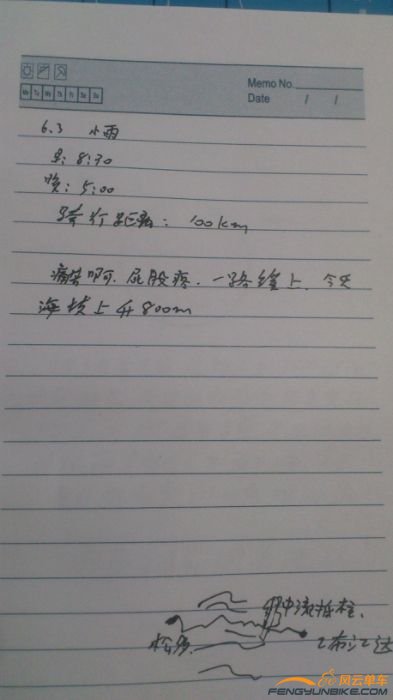 Memo No.
Mo Tu We Th Fr Sa Su
Date / /
6.3 小雨
早: 8:30
晚: 5:00
骑行距离: 100km
痛苦啊. 屁股疼. 一路缓上. 今天
海拔上升800m
中流砥柱.
松多
工布江达
风云单车
FENGYUNBIKE.COM